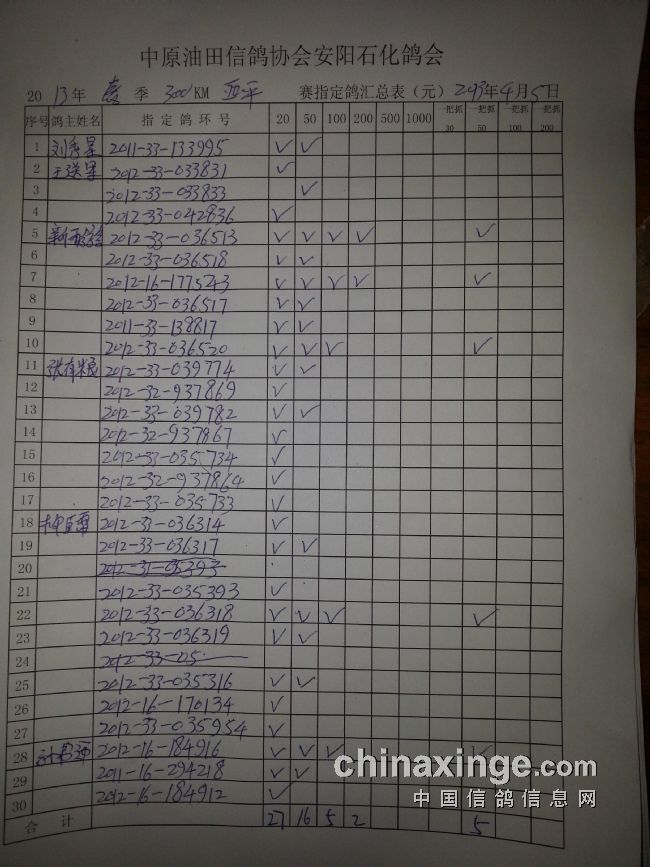 中原油田信鸽协会安阳石化鸽会
2013年春季300KM 赛指定鸽汇总表（元）2013年4月5日
序号 鸽主姓名 指定鸽环号 20 50 100 200 500 1000 一把抓30 一把抓50 一把抓100 一把抓200
1 2011-33-133995 ✓ ✓
2 2012-33-033831 ✓
3 2012-33-033833 ✓
4 2012-33-042836 ✓
5 2012-33-036513 ✓ ✓ ✓ ✓ ✓
6 2012-33-036518 ✓ ✓
7 2012-16-1775243 ✓ ✓ ✓ ✓ ✓
8 2012-33-036517 ✓ ✓
9 2011-33-138817 ✓ ✓
10 2012-33-036520 ✓ ✓ ✓ ✓
11 2012-33-039774 ✓ ✓
12 2012-32-937869 ✓
13 2012-33-039782 ✓ ✓
14 2012-32-937867 ✓
15 2012-33-035734 ✓
16 2012-32-937864 ✓
17 2012-33-035733 ✓
18 2012-33-036314 ✓
19 2012-33-036317 ✓ ✓
20
21 2012-33-035393 ✓
22 2012-33-036318 ✓ ✓ ✓ ✓
23 2012-33-036319 ✓ ✓
24 2012-33-05
25 2012-33-035316 ✓ ✓
26 2012-16-170134 ✓
27 2012-33-035954 ✓
28 2012-16-184916 ✓ ✓ ✓ ✓
29 2011-16-294218 ✓ ✓
30 2012-16-184912 ✓
合计 27 16 5 2 5
chinaxinge.com
中国信鸽信息网